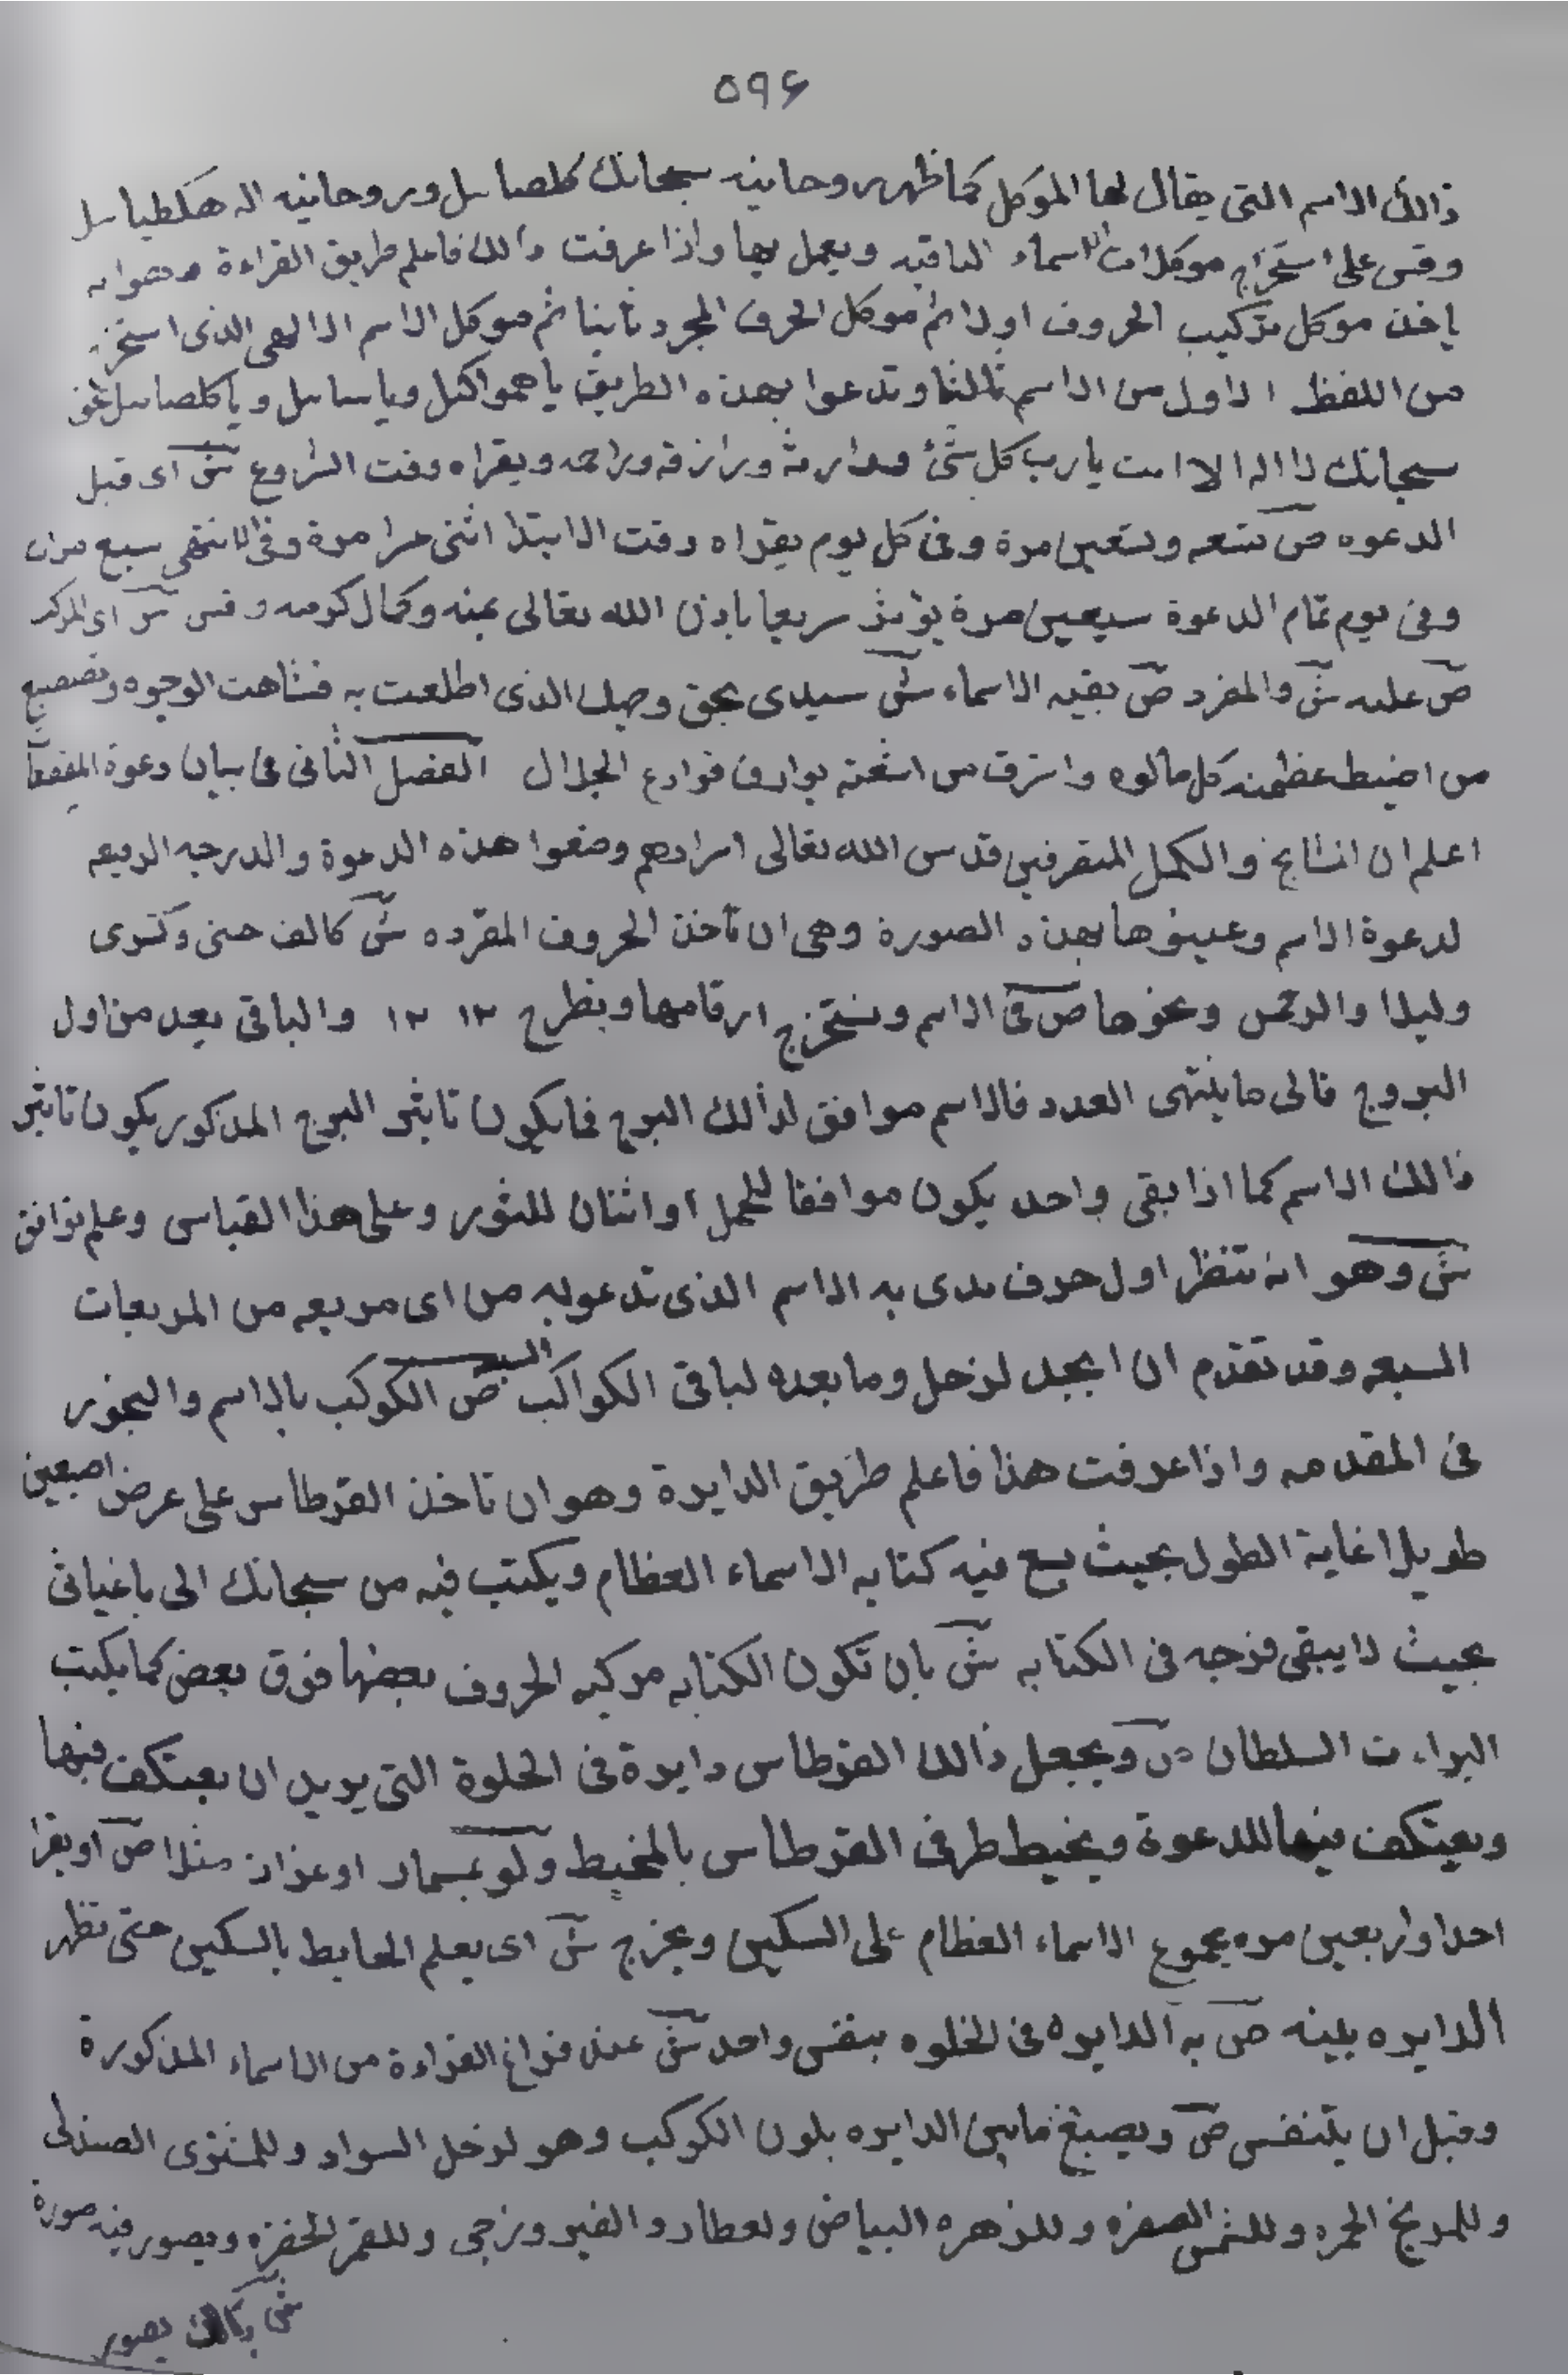 ٥٩٤
ذالك الاسم التى يقال لها الموكل كما ظهر روحانيه سبحانك كلصاىىل وروحانيه اله هكطياىىل
وقس على استخراج موكلات الاسماء الباقيه ويعمل بها واذا عرفت ذالك فاعلم طريق القراءة وهو انه
ياخذ موكل تركيب الحروف اولا ثم موكل الحرف المجرد ثانيا ثم موكل الاسم الالهى الذى استخرج
من اللفظ الاول من الاسم ثالثا وتدعوا بهذه الطريق يا هموا كىل وياىىاىىل ويا كلصاىىل بحق
سبحانك لا اله الا انت يا رب كل شئ ووارثه ورازقه وراحمه ويقراه وقت الشروع ش اى قبل
الدعوه ص تسعه وتسعين مرة وفى كل يوم يقراه وقت الابتدا اثنى عشرا مرة وفى الانتهى سبع مرات
وفى يوم تمام الدعوة سبعين مرة يؤثر سريعا باذن الله تعالى بمنه وكمال كرمه وقس ش اى المركب
ص عليه ش والمفرد ص بقيه الاسماء ش سيدى بحق وجهك الذى اطلعت به فشاهت الوجوه وتصبيع
من اضبط عظمته كل مالوه واشرق من اشعته بوارق قوارع الجلال الفصل الثانى فى بيان دعوة المقطعا
اعلم ان المشايخ والكمل المتصرفين قدس الله تعالى اسرارهم وضعوا هذه الدعوة والدرجه الرفيعه
لدعوة الاسم وعينوها بهذه الصورة وهى ان تاخذ الحروف المفرده ش كالف حى وكشوى
وليلا والرحمن ونحوها ص فى الاسم وتستخرج ارقامها ويطرح ١٢ ١٢ والباقى يعد من اول
البروج فالى ما ينتهى العدد فالاسم موافق لذالك البرج فما يكون تاثير البرج المذكور يكون تاثير
ذالك الاسم كما اذا بقى واحد يكون موافقا للحمل او اثنان للثور وعلى هذا القياس وعلم توافق
ش وهو انه تنظر اول حرف بدى به الاسم الذى تدعو به من اى مربعه من المربعات
السبعه وقد تقدم ان ابجد لزحل وما بعده لباقى الكواكب السبعه ص الكوكب بالاسم والبخور
فى المقدمه واذا عرفت هذا فاعلم طريق الدايرة وهو ان تاخذ القرطاس على عرض اصبعين
طويلا غاية الطول بحيث يسع فيه كتابه الاسماء العظام ويكتب فيه من سبحانك الى ياغياثى
بحيث لا يبقى فرجه فى الكتابه ش بان تكون الكتابه مركبه الحروف بعضها فوق بعض كما يكتب
البراءت السلطان ص ويجعل ذالك القرطاس دايرة فى الخلوة التى يريد ان يعتكف فيها
ويعتكف فيها للدعوة ويخيط طرفى القرطاس بالمخيط ولو بمسمار او غراز مثلا ص او يقرا
احدا واربعين مره مجموع الاسماء العظام على السكين ويخرج ش اى يعلم الحايط بالسكين حتى تظهر
الدايره بينه ص به الدايره فى الخلوه بنفس واحد ش عند فراغ القراءة من الاسماء المذكورة
وقبل ان يتنفس ص ويصبغ مابين الدايره بلون الكوكب وهو لزحل السواد وللمشترى الصندلى
وللمريخ الحمره وللشمس الصفره وللزهره البياض ولعطارد الفيروزجى وللقمر الخضره ويصور فيه صورة
ش ذالك يصور